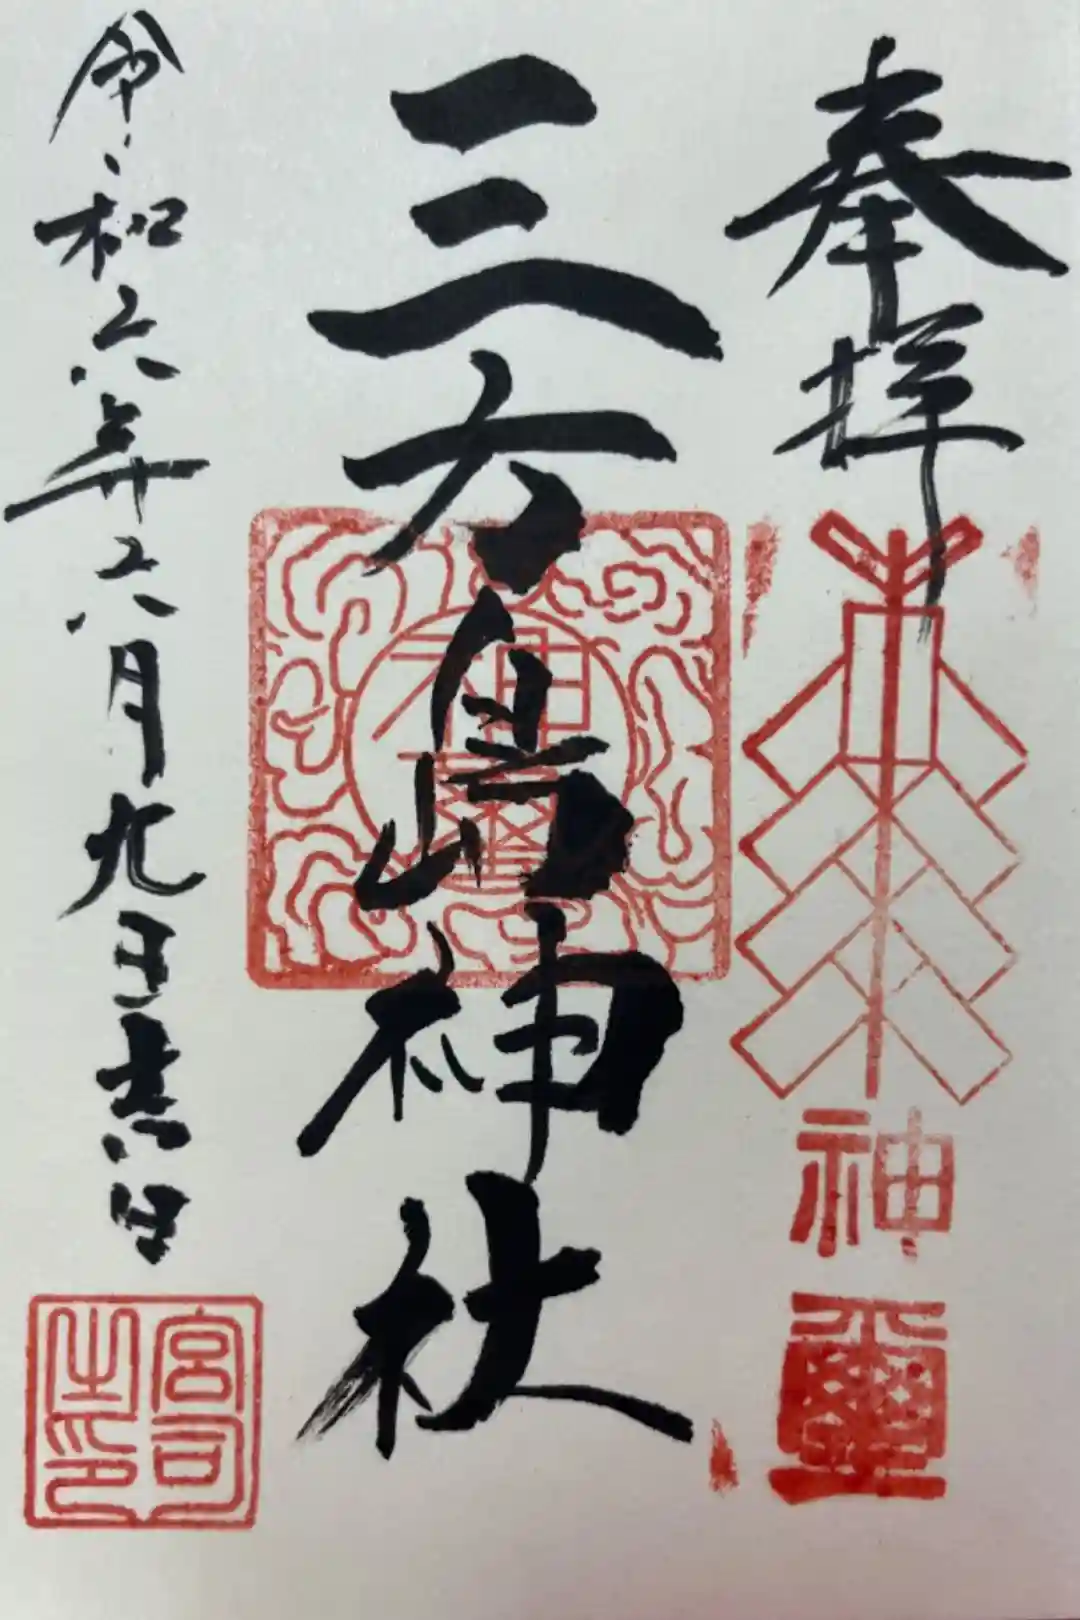 奉拝
神璽
三方嶋神社
神璽
令和六年六月九日吉日
宮司之印